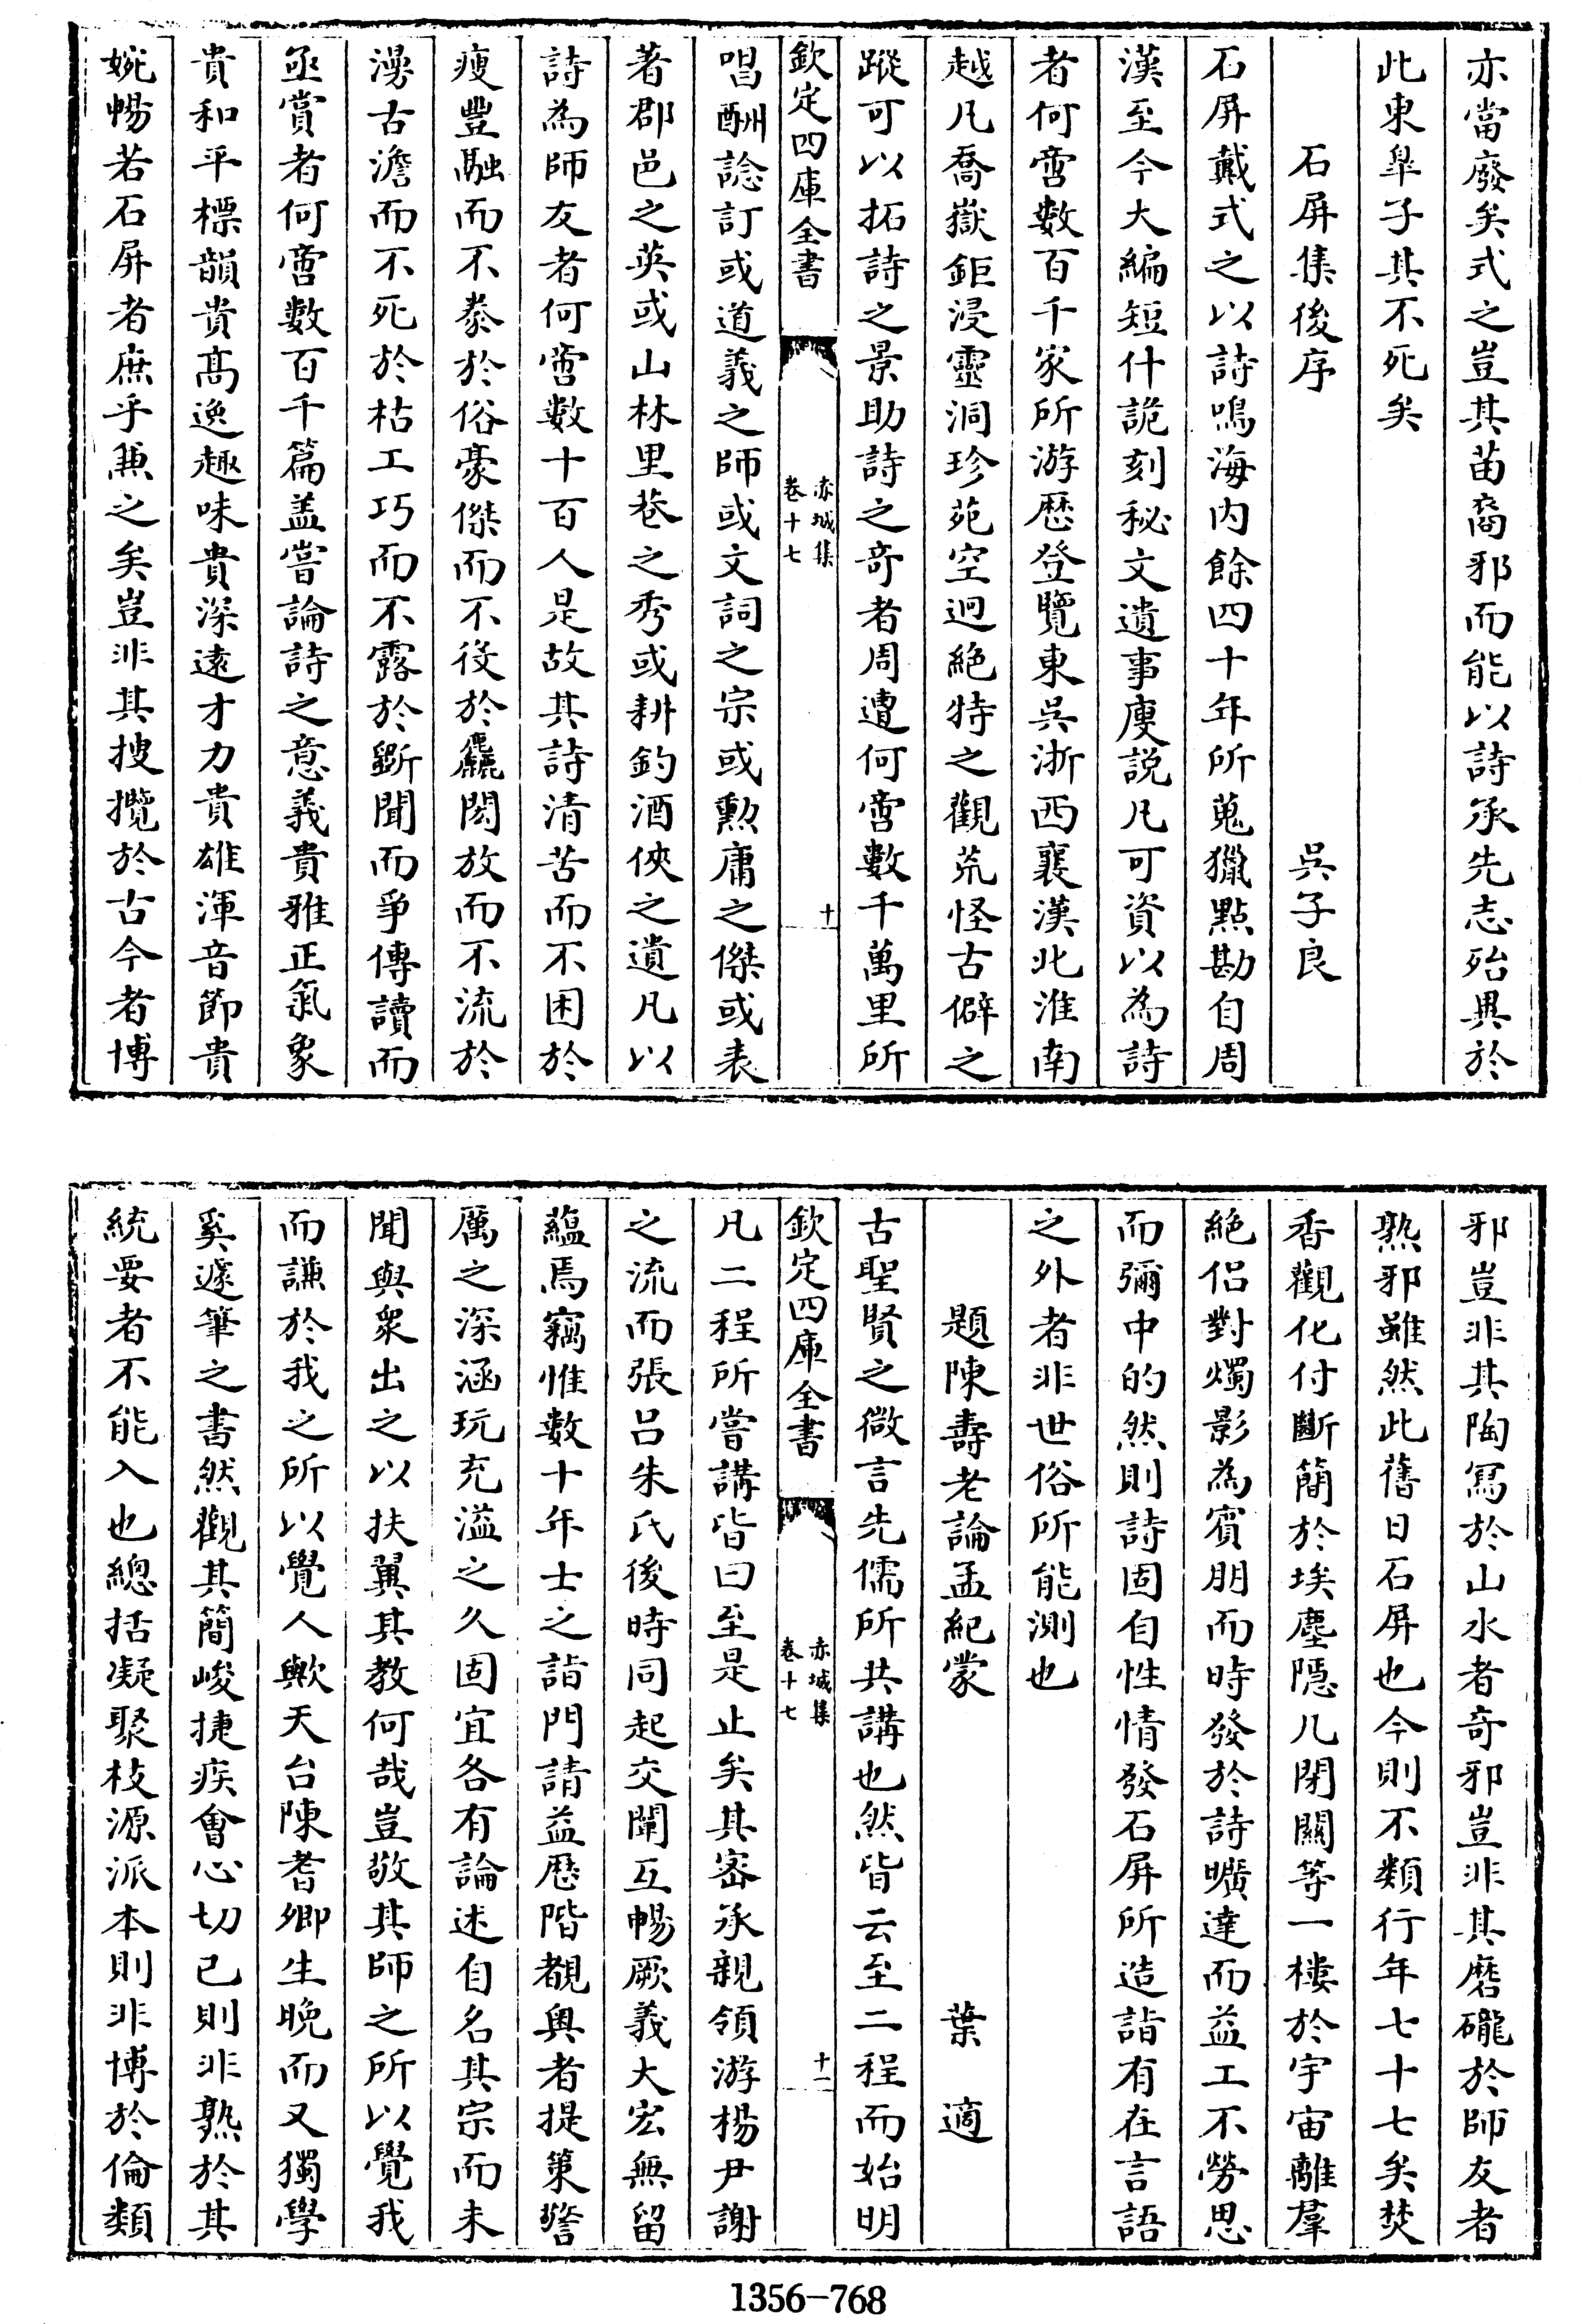 亦當廢矣式之豈其苗裔邪而能以詩承先志殆異於
此東臯子其不死矣
石屏集後序 吳子良
石屏戴式之以詩鳴海内餘四十年所蒐獵點勘自周
漢至今大編短什詭刻秘文遺事廋説凡可資以為詩
者何啻數百千家所游歴登覽東吳浙西襄漢北淮南
越凡喬嶽鉅浸靈洞珍苑空迥絶特之觀荒怪古僻之
蹤可以拓詩之景助詩之奇者周遭何啻數千萬里所
欽定四庫全書
赤城集
卷十七
十
唱酬諗訂或道義之師或文詞之宗或勲庸之傑或表
著郡邑之英或山林里巷之秀或耕釣酒俠之遺凡以
詩為師友者何啻數十百人是故其詩清苦而不困於
瘦豐融而不豢於俗豪傑而不役於麤閎放而不流於
漫古澹而不死於枯工巧而不露於斲聞而爭傳讀而
亟賞者何啻數百千篇盖嘗論詩之意義貴雅正氣象
貴和平標韻貴髙逸趣味貴深逺才力貴雄渾音節貴
婉暢若石屏者庶乎兼之矣豈非其搜攬於古今者博
邪豈非其陶冩於山水者奇邪豈非其磨礲於師友者
熟邪雖然此舊日石屏也今則不類行年七十七矣焚
香觀化付斷簡於埃塵隠几閉闗等一樓於宇宙離羣
絶侣對燭影為賓朋而時發於詩曠達而益工不勞思
而彌中的然則詩固自性情發石屏所造詣有在言語
之外者非世俗所能測也
題陳壽老論孟紀蒙 葉適
古聖賢之微言先儒所共講也然皆云至二程而始明
欽定四庫全書
赤城集
卷十七
十一
凡二程所嘗講皆曰至是止矣其密承親領游楊尹謝
之流而張吕朱氏後時同起交闡互暢厥義大宏無留
藴焉竊惟數十年士之詣門請益歴階覩奥者提策警
厲之深涵玩充溢之久固宜各有論述自名其宗而未
聞與衆出之以扶翼其教何哉豈敬其師之所以覺我
而謙於我之所以覺人歟天台陳耆卿生晩而又獨學
奚遽筆之書然觀其簡峻捷疾㑹心切已則非熟於其
統要者不能入也總括凝聚枝源派本則非博於倫類
1356-768